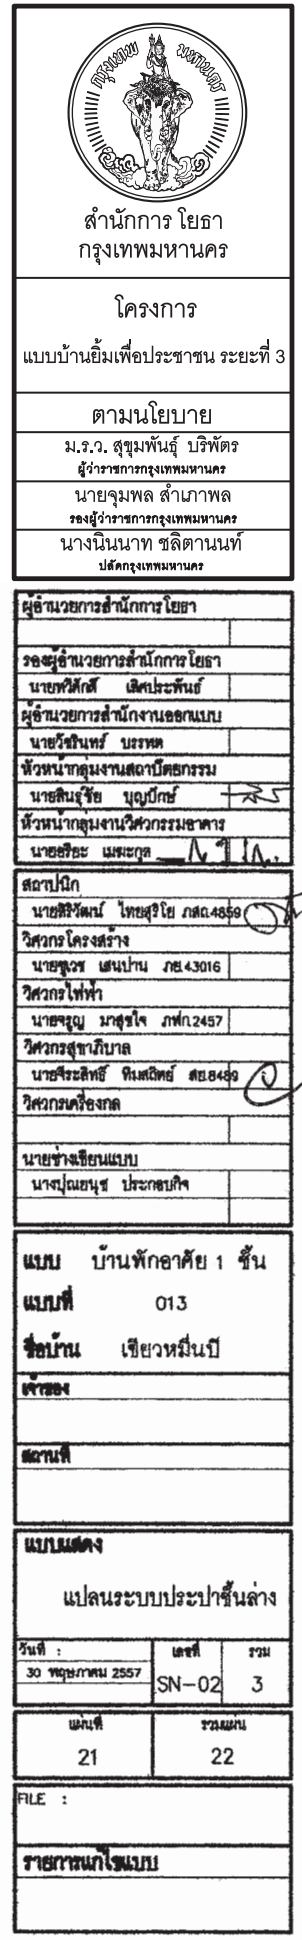 กรุงเทพ มหานคร
สำนักการโยธา
กรุงเทพมหานคร
โครงการ
แบบบ้านยิ้มเพื่อประชาชน ระยะที่ 3
ตามนโยบาย
ม.ร.ว. สุขุมพันธุ์ บริพัตร
ผู้ว่าราชการกรุงเทพมหานคร
นายจุมพล สำเภาพล
รองผู้ว่าราชการกรุงเทพมหานคร
นางนินนาท ชลิตานนท์
ปลัดกรุงเทพมหานคร
ผู้อำนวยการสำนักการโยธา
รองผู้อำนวยการสำนักการโยธา
นายทวีศักดิ์ เลิศประพันธ์
ผู้อำนวยการสำนักงานออกแบบ
นายวัชรินทร์ บรรพต
หัวหน้ากลุ่มงานสถาปัตยกรรม
นายสินธุชัย บุญปักษ์
หัวหน้ากลุ่มงานวิศวกรรมอาคาร
นายอริยะ เมฆะกูล
สถาปนิก
นายสิริวัฒน์ ไทยสุริโย ภสถ.4859
วิศวกรโครงสร้าง
นายชูเวช เสนปาน ภย.43016
วิศวกรไฟฟ้า
นายจรูญ มาสุขใจ ภฟก.2457
วิศวกรสุขาภิบาล
นายจีระสิทธิ์ ทิมสถิตย์ สย.8489
วิศวกรเครื่องกล
นายช่างเขียนแบบ
นางปุณยนุช ประกอบกิจ
แบบ บ้านพักอาศัย 1 ชั้น
แบบที่ 013
ชื่อบ้าน เขียวหมื่นปี
เจ้าของ
สถานที่
แบบแสดง
แปลนระบบประปาชั้นล่าง
วันที่ : เลขที่ รวม
30 พฤษภาคม 2557 SN-02 3
แผ่นที่ รวมแผ่น
21 22
FILE :
รายการแก้ไขแบบ